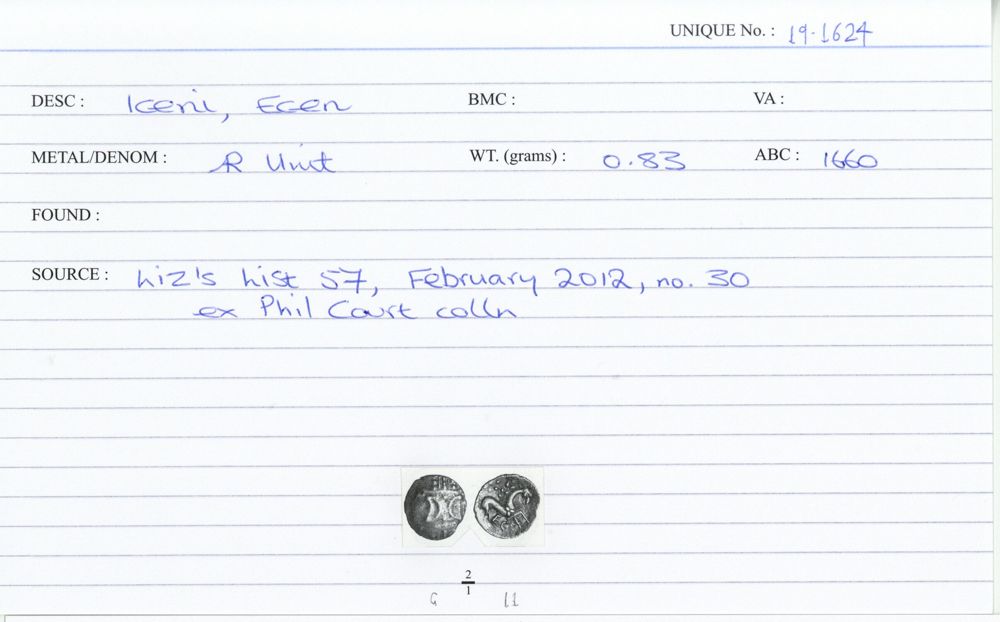 UNIQUE No. : 19.1624
DESC : Iceni, Ecen BMC : VA :
METAL/DENOM : R Unit WT. (grams) : 0.83 ABC : 1660
FOUND :
SOURCE : Liz's List 57, February 2012, no. 30
ex Phil Court colln
2
1
G 11